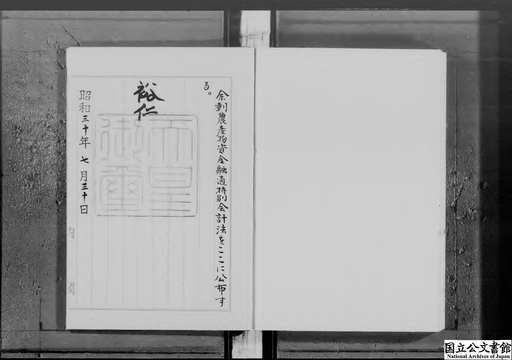 余剰農産物資金融通特別会計法をここに公布す
る。
裕仁
天皇
御璽
昭和三十年七月三十日
国立公文書館
National Archives of Japan